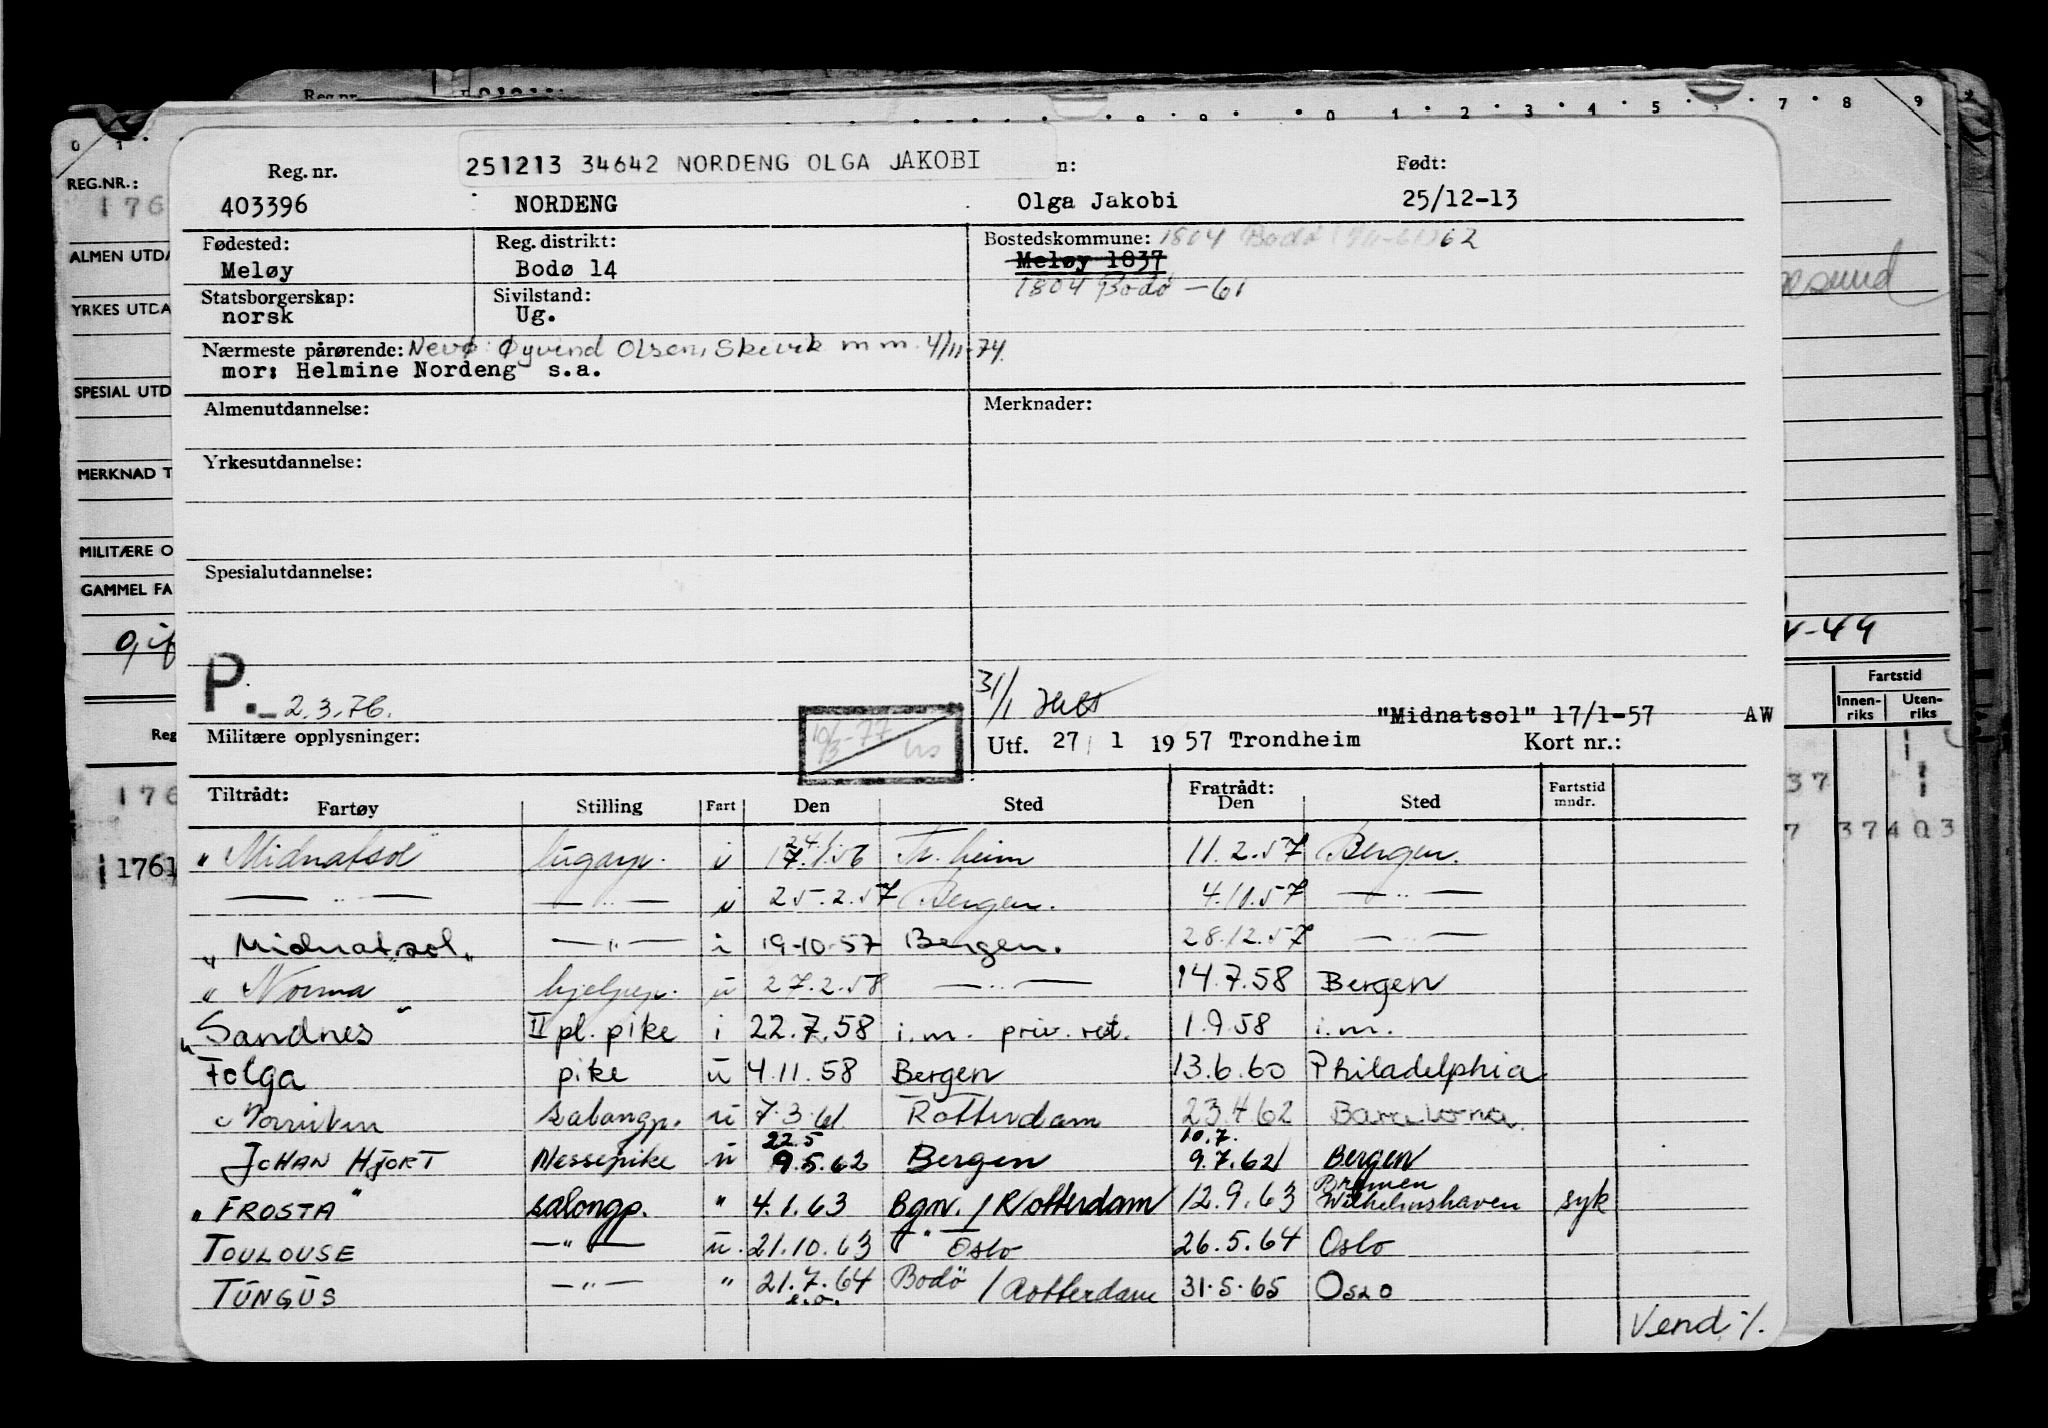 Reg.nr.
0 1 2 3 4 5 7 8 9
REG.NR.:
176
ALMEN UTDA
YRKES UTDA
SPESIAL UTD
MERKNAD T
MILITÆRE O
GAMMEL FA
Reg
176
1761
-44
Fartstid
Innen-riks Uten-riks
37
7 37403
Reg. nr. 251213 34642 NORDENG OLGA JAKOBI n: Født:
403396 NORDENG Olga Jakobi 25/12-13
Fødested: Reg. distrikt: Bostedskommune: 1804 Bodø 62
Meløy Bodø 14 Meløy 1837
Statsborgerskap: Sivilstand: 1804 Bodø -61
norsk Ug.
Nærmeste pårørende: Nevø: Øyvind Olsen, Skevik m m. 4/11-74.
mor: Helmine Nordeng s.a.
Almenutdannelse: Merknader:
Yrkesutdannelse:
Spesialutdannelse:
P. - 2.3.76. 31/1
"Midnatsol" 17/1-57 AW
Militære opplysninger: Utf. 27/1 1957 Trondheim Kort nr.:
Tiltrådt: Fratrådt:
Fartøy Stilling Fart Den Sted Den Sted Fartstid mndr.
"Midnatsol" lugarp. i Tr.heim 11.2.57 Bergen.
— " — — " — i 25.2.57 Bergen. 4.10.57 — " —
"Midnatsol" — " — i 19-10-57 Bergen. 28.12.57 — " —
"Norma" hjelpep. u 27.2.58 — " — 14.7.58 Bergen
"Sandnes II pl. pike i 22.7.58 i.m. priv. ret. 1.9.58 i.m.
Folga pike u 4.11.58 Bergen 13.6.60 Philadelphia
salongp. u 7.3.61 Rotterdam 23.4.62 Barcelona
22.5 10.7.
JOHAN HJORT Messepike u 9.5.62 Bergen 9.7.62 Bergen
Bremen
"FROSTA" salongp. " 4.1.63 Bgn. / Rotterdam 12.9.63 Wilhelmshaven syk
TOULOUSE — " — u. 21.10.63 " Oslo 26.5.64 Oslo
TUNGUS — " — " 21.7.64 Bodø / Rotterdam 31.5.65 OSLO
Vend ./.